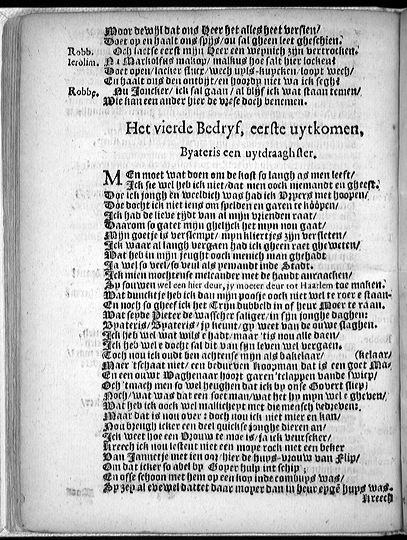 Maar dewijl dat ons Heer het alles heet versien/
Doet op en haalt ons spijs/ ou sal gheen leet gheschien.
Robb. Och laetse eerst mijn Heer een weynich zijn vertrocken.
Ierolim.
Doet open/lacker fluck/wech uyls-kuycken/loopt wech/
En haalt ons den ontbijt/en hoordy niet wa ick segh?
Robbe. Nu Joncker/ ick sal gaan/ al blijf ick wat staan temen/
Wie kan een ander hier de vrese doch benemen.
Het vierde Bedryf, eerste uytkomen,
Byateris een uytdraaghster.
MEn moet wat doen om de kost so langh as men leeft/
Ick sie wel heb ick niet/dat men oock niemandt en gheeft.
Doe ick jongh en weeldich was had ick Vryers met hoopen/
Doe docht ick niet iens om spelden en garen te koopen/
Ick had de lieve tijdt van al mijn vrienden raat/
Daarom so gatet mijn ghelijck het mijn nou gaat/
Mijn goetje is versLempt/ mijn kliertjes zijn versleten/
Ick waar al langh vergaen had ick gheen raet gheweten/
Wat heb in mijn jeught oock menich man ghehadt
Ja wel so veel/ so veul als yemandt inde Stadt.
Ick mien mochtense melcander met de handt aanraacken/
Sy souwen wel een hier deur, jy moeter deur tot Haarlem toe maken.
Wat dunckt je heb ick dan mijn poosje oock niet wel te roer e staan
En noch so gheef ick het Trijn dubbeld in of heur Moer te raan.
Wat seyde Pieter de wasscher saliger/in sijn jonghe daghen:
Byateris/ Byateris/ jy keunt/ gy weet van de ouwe slaghen.
Ick heb wel wat wilds e hadt/ maar 'tis nou alle daen/
Ick heb wel e docht sal dit van sijn leven wel vergaen.
Toch nou ick oudt ben achtense mijn als bakelaar/ (kelaar/
Maer 'tschaat niet/ een bedurven koopman dat is een goet Ma-
En een ouwt Waghenaar hoort garen 'tclappen vande swiep/
Och 'tmach men so wel heughen dat ick by onse Govert sliep;
Noch/ wat was dat een soet man/ wat het hy mijn wel e gheven/
Wat heb ick oock wel mallicheyt met die mensch bedreven:
Maar dat is nou over: doch nou ick niet mier en kan/
Nou breugh icker een deel quickse jonghe dieren an/
Ick weet hoe een Vrouw te moe is/ ja ick veurseker/
Kreech ick nou lestent niet een moye rock met een beker
Van Jannetje met ien oor/ hier de huys-vrouw van Flip/
Om dat icker so abel by Goper hulp int schip;
En ofse schoon met hem op een koy inde combuys was/
Sy zey al evewel dattet daar moyer dan in heur eygē huys was.
Kreech